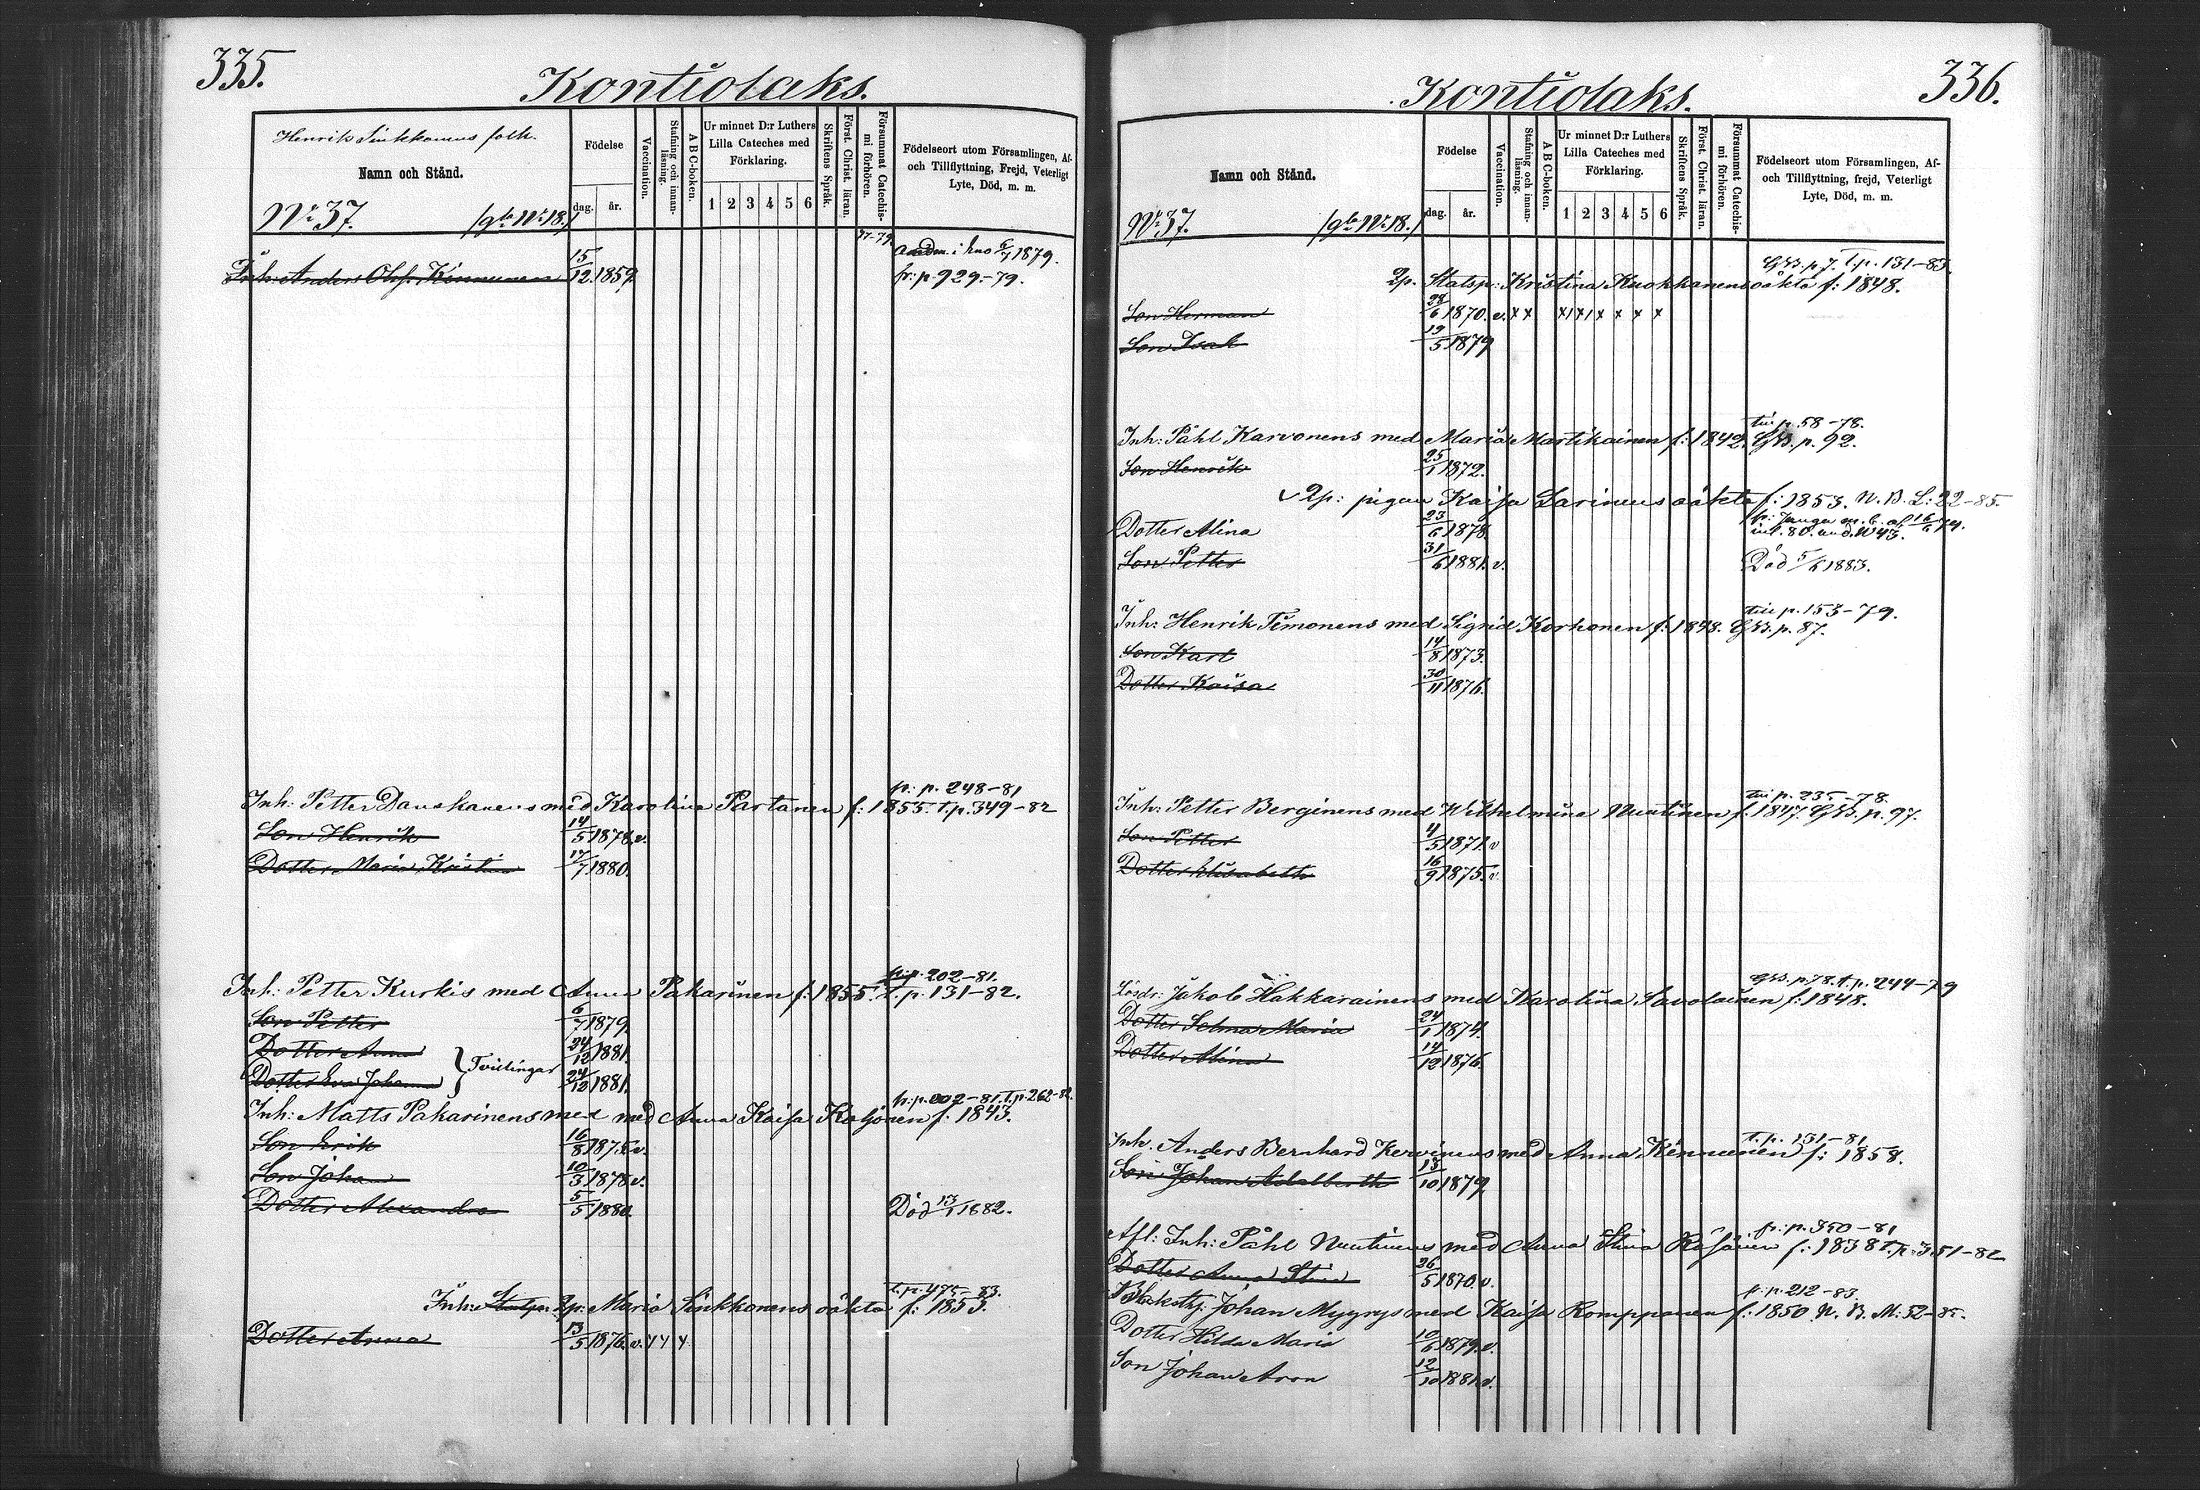 335.
Kontiolaks.
Henrik Sinkkonens folk.
Namn och Stånd.
Nr: 37. /gla Nr: 18./
Födelse
dag. år.
Vaccination.
Stafning och innanläsning.
ABC-boken.
Ur minnet D:r Luthers Lilla Cateches med Förklaring.
1 2 3 4 5 6
Skriftens Språk.
Först. Christ. läran.
Försummat Catechismi förhören.
Födelseort utom Församlingen, Af- och Tillflyttning, Frejd, Veterligt Lyte, Död, m. m.
77-79.
1879.
Inh: Anders Olof Kinnunen 15/12 1859. fr: p. 929-79.
fr: p. 248-81
Inh: Petter Danskanens med Karolina Partanen f: 1855. t.p. 349-82
Son Henrik 14/5 1878. v.
Dotter Maria Kristina 17/7 1880.
fr: p. 202-81.
Inh: Petter Kurkis med Anna Pakarinen f: 1855. t. p. 131-82.
Son Petter 6/7 1879.
Dotter Anna 24/12 1881.
Tvillingar
Dotter Eva Johanna 24/12 1881.
t.p. 262-82.
Inh: Matts Pakarinens med med Anna Kaisa Kotjonen f. 1843.
Son Erik 16/8 1875. v.
Son Johan 10/3 1878. v.
Dotter Alexandra 5/5 1880. Död 13/1 1882.
t.p. 475-83.
Inh: 2p: Maria Sinkkonens oäkta f: 1853.
Dotter Anna 13/5 1876. v.
336.
Kontiolaks.
Namn och Stånd.
Nr: 37. /gla Nr: 18./
Födelse
dag. år.
Vaccination.
Stafning och innanläsning.
ABC-boken.
Ur minnet D:r Luthers Lilla Cateches med Förklaring.
1 2 3 4 5 6
Skriftens Språk.
Först. Christ. läran.
Försummat Catechismi förhören.
Födelseort utom Församlingen, Af- och Tillflyttning, frejd, Veterligt Lyte, Död, m. m.
GB. p 7. t.p. 131-83.
2p. Statsp: Kristina Kuokkanens oäkta f: 1848.
Son Herman 28/6 1870. v. x x x x x x x x
Son Isak 19/5 1879
p. 58-78.
Inh: Påhl Karvonens med Maria Martikainen f: 1842. GB. p. 92.
Son Henrik 25/1 1872.
2p: pigan Kaisa Larinens oäkta f: 1853. N. B. L: 22-85.
Dotter Alina 23/6 1878.
Son Petter 31/6 1881. v. Död 5/6 1883.
p. 153-79.
Inh: Henrik Timonens med Sigrid Korhonen f: 1848. GB. p. 87.
Son Karl 14/8 1873.
Dotter Kaisa 30/11 1876.
p. 235-78.
Inh: Petter Berginens med Wilhelmina Nuutinen f. 1847. GB. p. 97.
Son Petter 4/5 1871. v
Dotter Elisabeth 16/9 1875. v
GB. p. 78. t. p. 244-79
Jakob Hakkarainens med Karolina Savolainen f: 1848.
Dotter Selma Maria 24/1 1874.
Dotter Alina 14/12 1876.
t. p. 131-81.
Inh. Anders Bernhard Kervinens med Anna Kinnunen f: 1858.
Son Johan Adalberth 13/10 1879.
fr: p. 350-81
Afl: Inh: Påhl Nuutinens med Anna Stina Räsänen f: 1838 t. p. 351-82
Dotter Anna Stina 26/5 1870. v.
fr: p. 212-83.
Johan Myyrys med Kaisa Romppanen f: 1850 N. B. M: 52-85.
Dotter Hilda Maria 10/6 1879. v.
Son Johan Aron 12/10 1881. v.